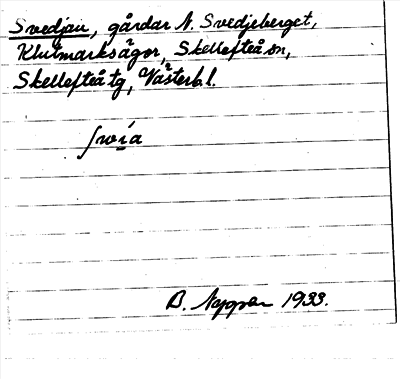 Svedjan, gårdar N. Svedjeberget,
Klutmarksågor, Skellefteå sn,
Skellefteå tg, Västerb. l.
svia
B. 1933.